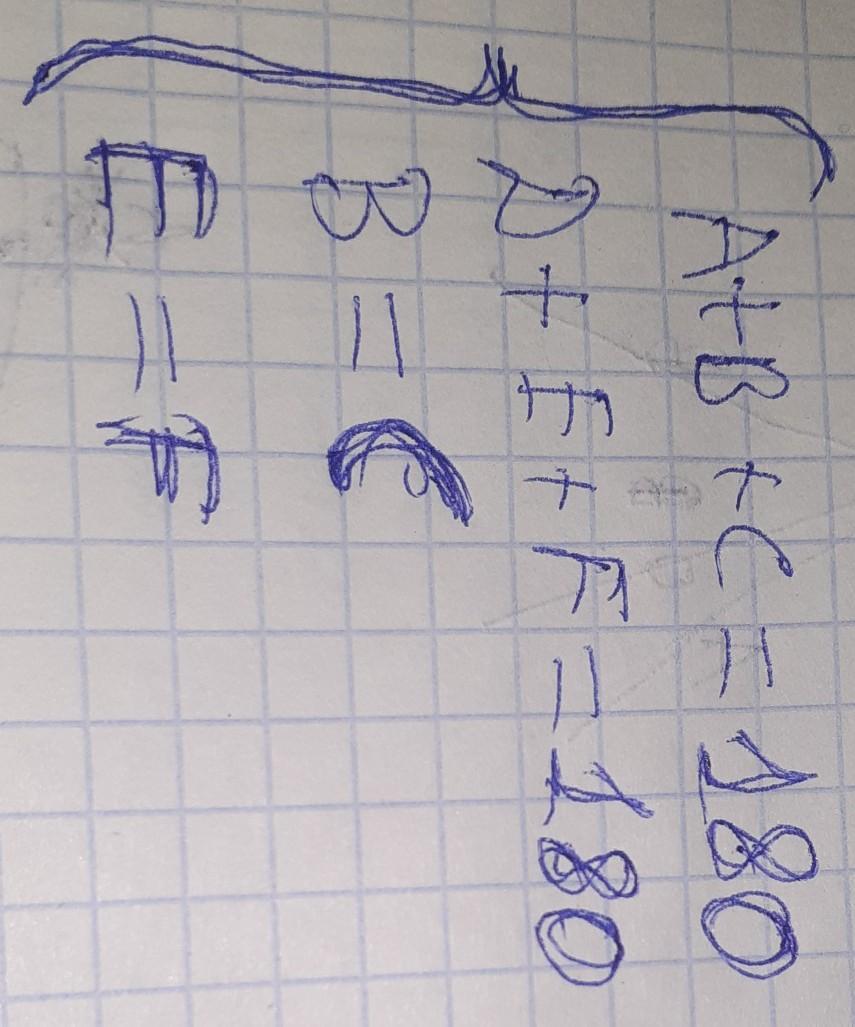 A+B+C=180
D+E+F=180
B=C
E=F